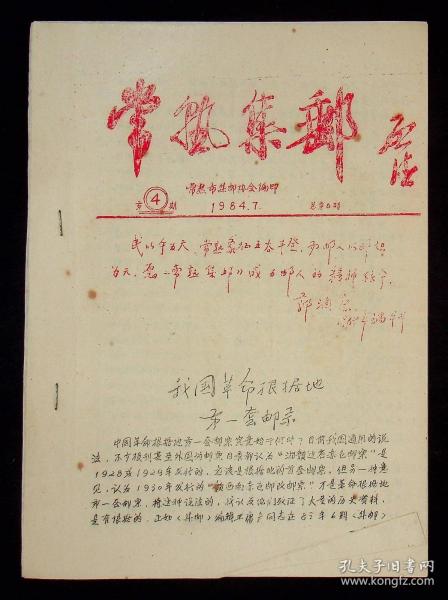 常熟集郵
常熟市集邮协会编印
第4期
1984.7.
总第6期
民以食为天,常熟
为天,愿《常熟集邮》成为邮人的精神粮食。
我国革命根据地
第一套邮票
中国革命根据地第一套邮票究竟始于何时?目前我国通用的说
法,不少报刊甚至外国的邮票目录都认为“湘赣边省赤色邮票”是
1928或1929年发行的,应该是根据地的首套邮票,但另一种意
见,认为1930年发行的“赣西南赤色邮政邮票”才是革命根据地
第一套邮票,持这种说法的,我认为他们考证了大量的历史资料,
是有根据的。正如《集邮》编辑 同志在57年6期《集邮》
孔夫子旧书网
kongfz.com